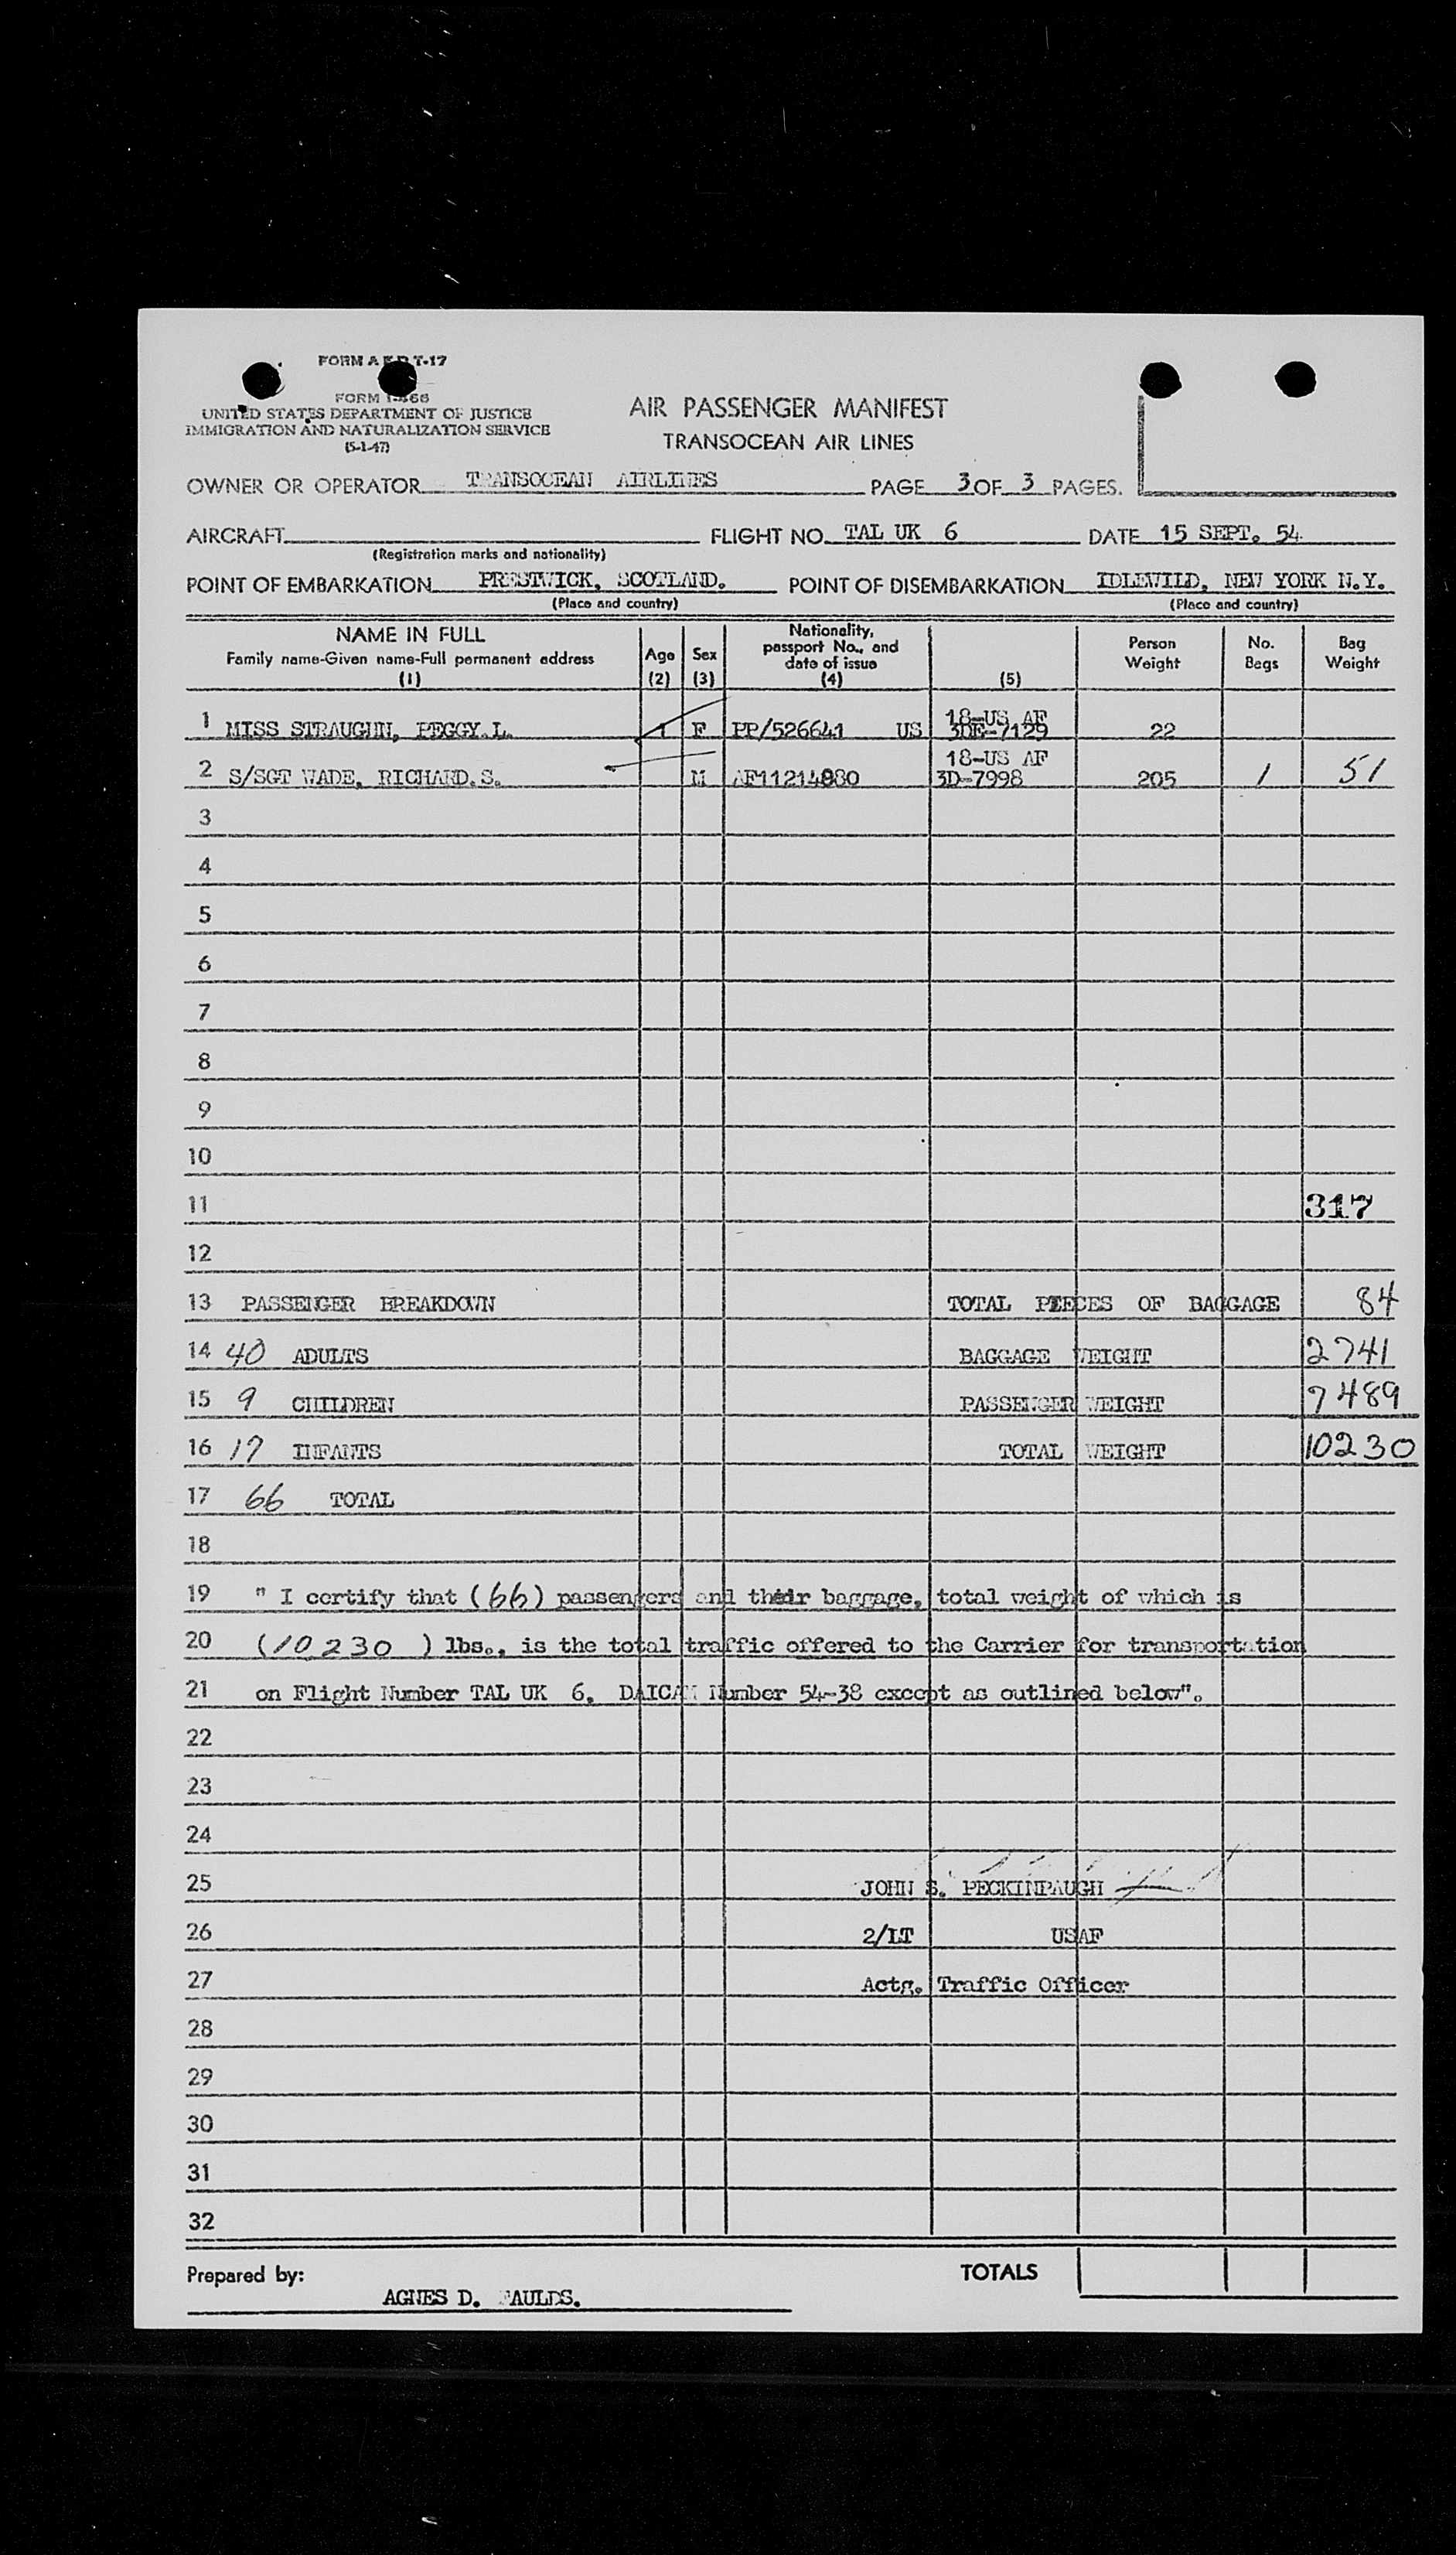 FORM A E D T-17
FORM I-466
UNITED STATES DEPARTMENT OF JUSTICE
IMMIGRATION AND NATURALIZATION SERVICE
(5-1-47)
AIR PASSENGER MANIFEST
TRANSOCEAN AIR LINES
OWNER OR OPERATOR TRANSOCEAN AIRLINES PAGE 3 OF 3 PAGES.
AIRCRAFT FLIGHT NO. TAL UK 6 DATE 15 SEPT. 54
(Registration marks and nationality)
POINT OF EMBARKATION PRESTWICK, SCOTLAND. POINT OF DISEMBARKATION IDLEWILD, NEW YORK N.Y.
(Place and country) (Place and country)
NAME IN FULL
Family name-Given name-Full permanent address
(1)
Age
(2)
Sex
(3)
Nationality,
passport No., and
date of issue
(4)
(5)
Person
Weight
No.
Bags
Bag
Weight
18-US AF
1 MISS STRAUGHN, PEGGY.L. 1 F PP/526641 US 3DE-7129 22
18-US AF
2 S/SGT WADE, RICHARD.S. M AF11214880 3D-7998 205 1 51
3
4
5
6
7
8
9
10
11 317
12
13 PASSENGER BREAKDOWN TOTAL PIECES OF BAGGAGE 84
14 40 ADULTS BAGGAGE WEIGHT 2741
15 9 CHILDREN PASSENGER WEIGHT 7489
16 17 INFANTS TOTAL WEIGHT 10230
17 66 TOTAL
18
19 " I certify that (66) passengers and their baggage, total weight of which is
20 (10230 ) lbs., is the total traffic offered to the Carrier for transportation
21 on Flight Number TAL UK 6, DAICAM Number 54-38 except as outlined below".
22
23
24
25 JOHN S. PECKINPAUGH
26 2/LT USAF
27 Actg. Traffic Officer
28
29
30
31
32
Prepared by: TOTALS
AGNES D. FAULDS.